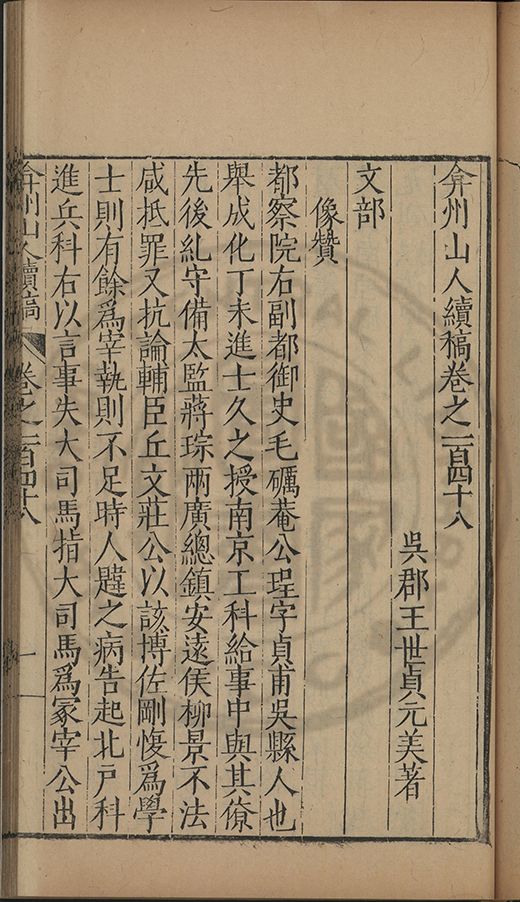 弇州山人續稿卷之一百四十八
吳郡王世貞元美著
文部
像贊
都察院右副都御史毛礪菴公珵字貞甫吳縣人也
舉成化丁未進士久之授南京工科給事中與其僚
先後糾守備太監蔣琮兩廣總鎮安遠侯柳景不法
咸抵罪又抗論輔臣丘文莊公以該博佐剛愎爲學
士則有餘爲宰執則不足時人韙之病告起北戶科
進兵科右以言事失大司馬指大司馬爲冢宰公出
弇州山人續稿 卷之一百四十八 一